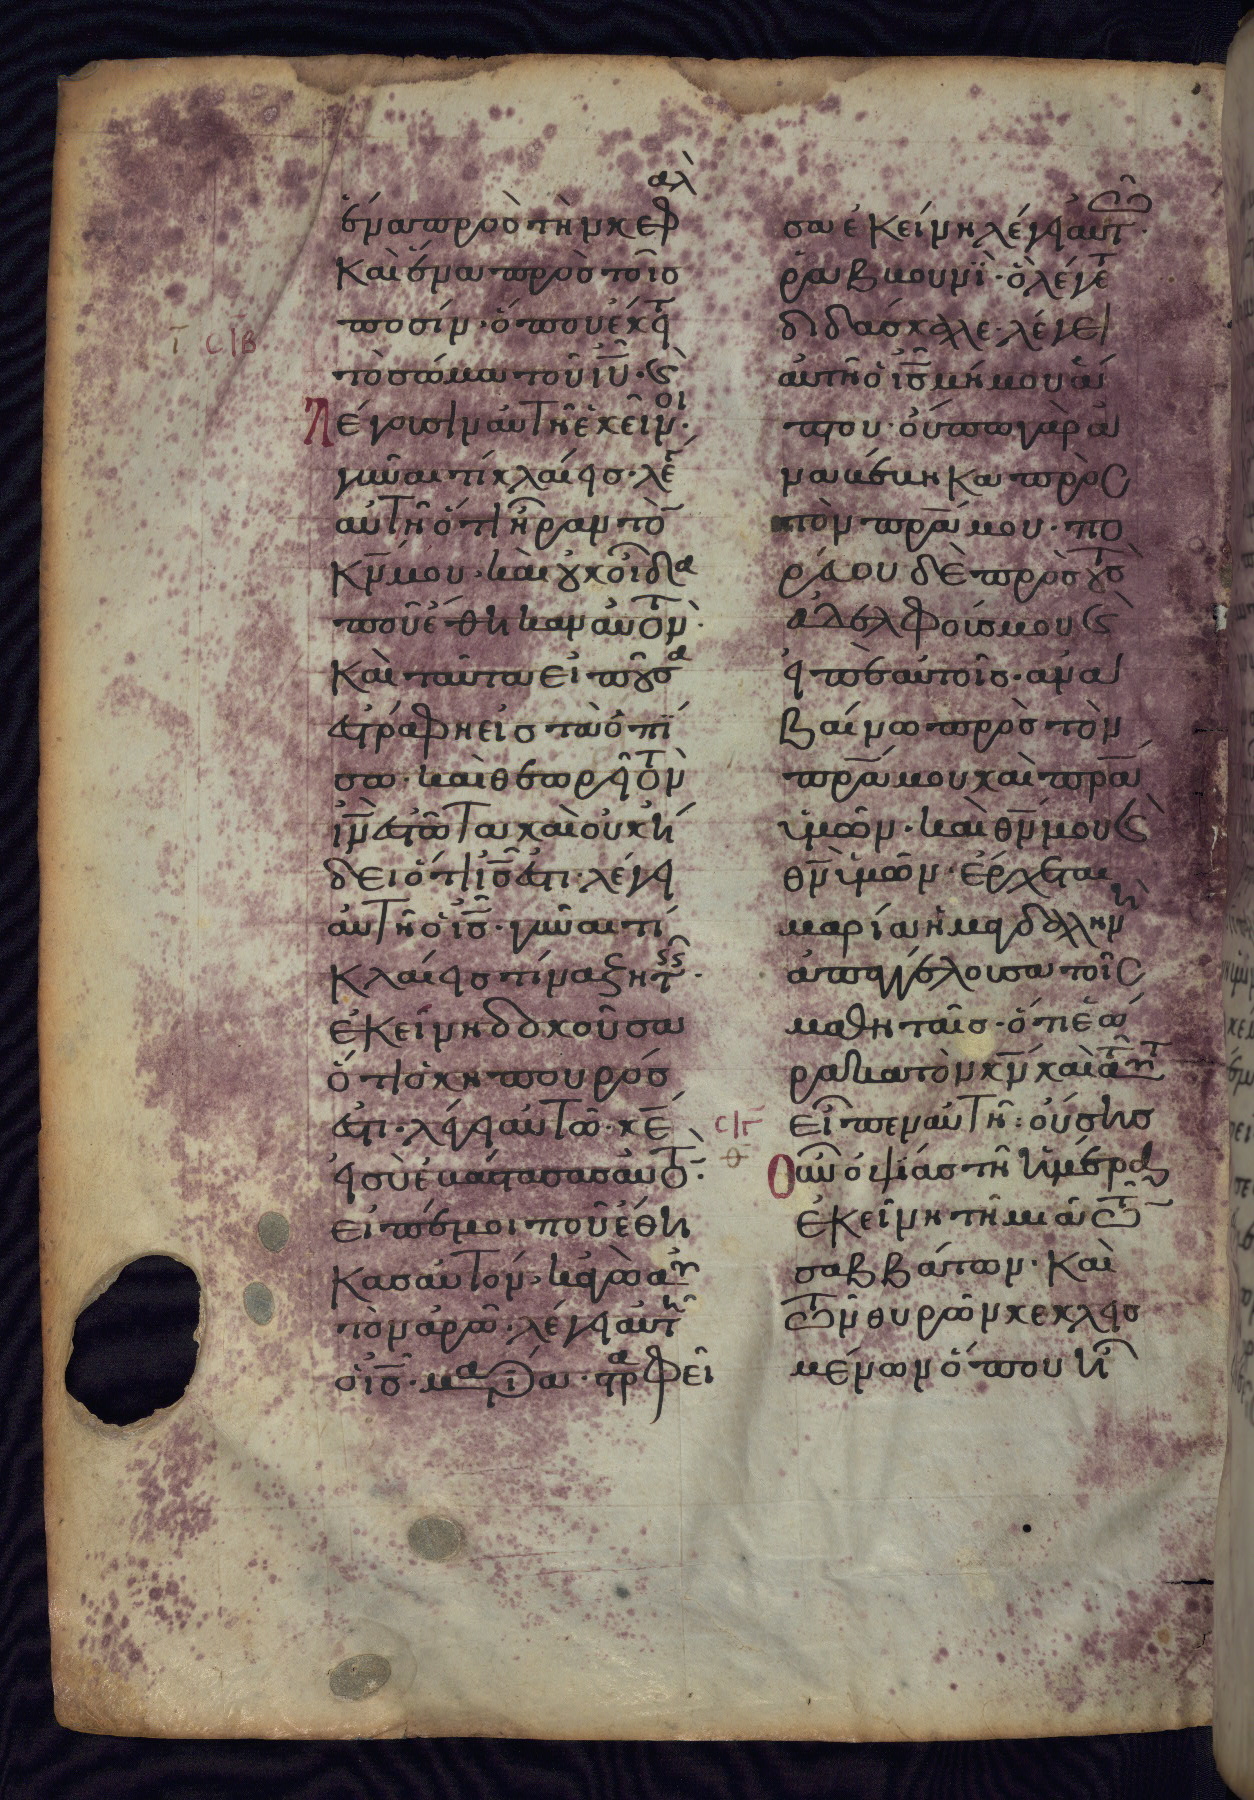 ἕνα πρὸς τὴν κεφαλ
καὶ ἕνα πρὸς τοῖς
ποσίν· ὅπου ἔκειτ
τὸ σῶμα τοῦ ἰῦ· καὶ
ι σιβ
λέγουσιν αὐτῆ ἐκεῖνοι·
γύναι τί κλαίεις· λέγ
αὐτῆ ὅτι ἦραν τὸν
κν̄ μου· καὶ οὐκ οἶδα
ποῦ ἔθηκαν αὐτόν·
καὶ ταῦτα εἰποῦσα
ἐστράφη εἰς τὰ ὀπί
σω· καὶ θεωρεῖ τὸν
ἰν̄ ἑστῶτα καὶ οὐκ ἤ
δει ὅτι ἰς̄ ἐστι· λέγει
αὐτῆ ὁ ἰς̄· γύναι τί
κλαίεις τίνα ζητεῖς·
ἐκείνη δοκοῦσα
ὅτι ὁ κηπουρός
ἐστι· λέγει αὐτῶ· κε̄
εἰ σὺ ἐβάστασας αὐτόν·
εἰπέ μοι ποῦ ἔθη
κας αὐτόν· κἀγὼ αὐ
τὸν ἀρῶ· λέγει αὐτῆ
ὁ ἰς̄· μαρία· στραφεῖ
σα ἐκείνη λέγει αὐτῶ·
ραβουνί· ὃ λέγετ
διδάσκαλε· λέγει
αὐτῆ ὁ ἰς̄ μή μου ἅ
πτου· οὔπω γὰρ ἀ
ναβέβηκα πρὸς
τὸν πρ̄α μου· πο
ρεύου δὲ πρὸς τοὺς
ἀδελφούς μου καὶ
εἰπὲ αὐτοῖς· ἀνα
βαίνω πρὸς τὸν
πρ̄α μου καὶ πρ̄α
ὑμῶν· καὶ θν̄ μου καὶ
θν̄ ὑμῶν· ἔρχεται
μαρία ἡ μαγδαληνὴ
ἀπαγγέλουσα τοῖς
μαθηταῖς· ὅτι ἑώ
ρακα τὸν κν̄ καὶ ταῦτ
εἶπεν αὐτῆ: οὔσης
σιγ
θ
οὖν ὀψίας τῆ ἡμέρα
ἐκείνη τῆ μιᾶ τῶν
σαββάτων· καὶ
τῶν θυρῶν κεκλεις
μένων ὅπου ἦ